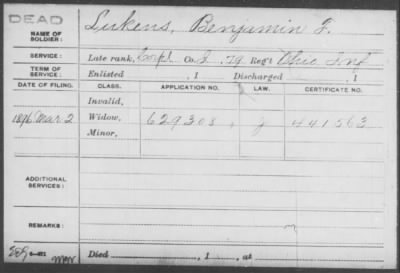 DEAD
NAME OF SOLDIER: Lukens, Benjamin F.
SERVICE: Late rank, Corpl Co. I, 79 Reg't Ohio Inf
TERM OF SERVICE: Enlisted , 1 Discharged , 1
DATE OF FILING. CLASS. APPLICATION NO. LAW. CERTIFICATE NO.
Invalid,
1896 Mar. 2 Widow, 629308 441563
Minor,
ADDITIONAL SERVICES:
REMARKS:
Died , 1 , at